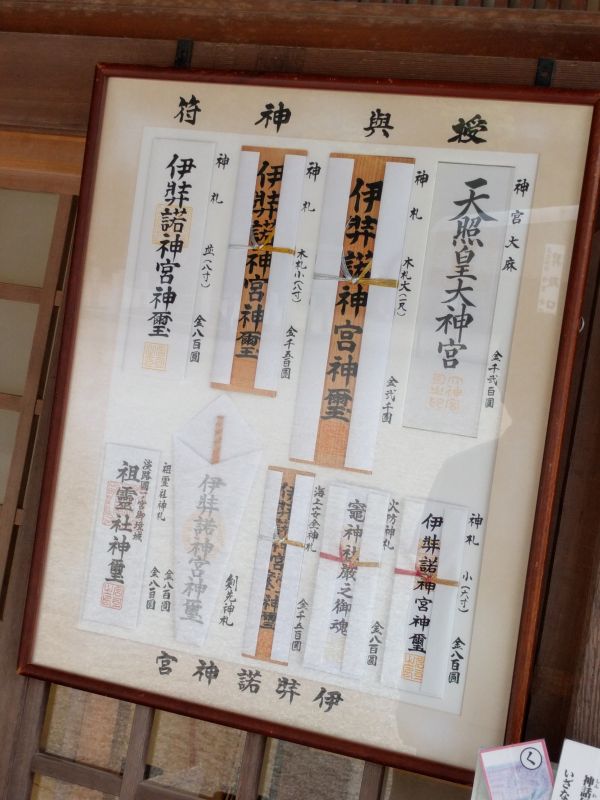 授與神符
神宮大麻
天照皇大神宮
金千弐百圓
神札
木札大(一尺)
伊弉諾神宮神璽
金弐千圓
神札
木札小(八寸)
伊弉諾神宮神璽
金千五百圓
神札
並(八寸)
伊弉諾神宮神璽
金八百圓
神札
小(六寸)
伊弉諾神宮神璽
金八百圓
火防神札
竈神社厳之御魂
金八百圓
海上安全神札
金千五百圓
伊弉諾神宮神璽
剣先神札
金八百圓
祖霊社神札
淡路國一宮御陵域
祖霊社神璽
金八百圓
伊弉諾神宮
く
神話
いざな